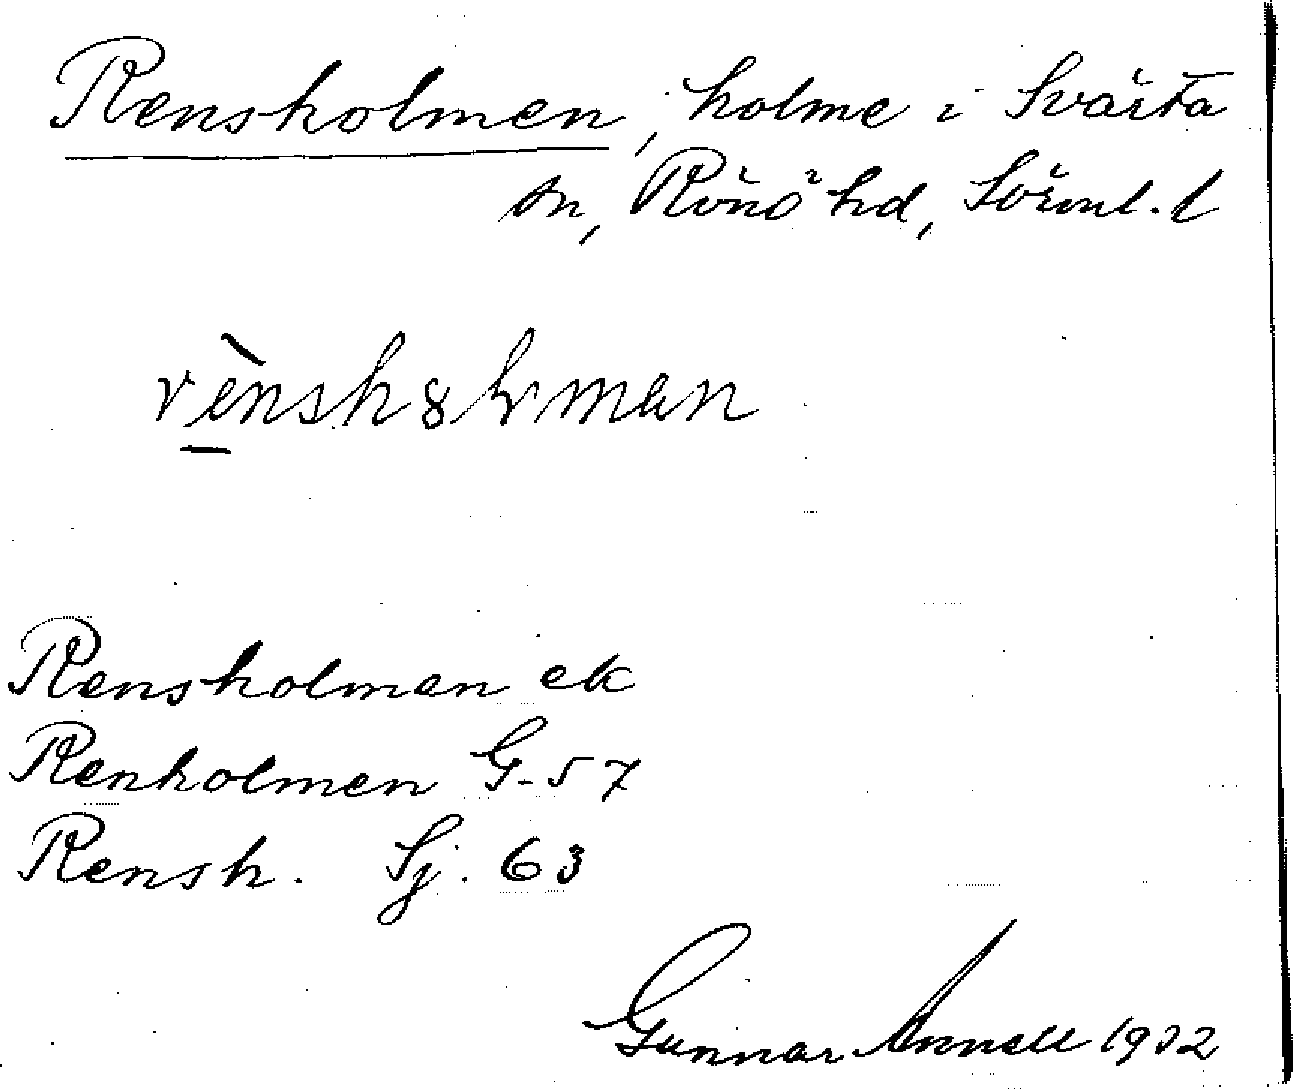 Rensholmen, holme i Svärta
sn, Rönö hd, Sörml. l
Rensholmen ek
Renholmen G-57
Rensh. Sj. 63
Gunnar Annell 1932